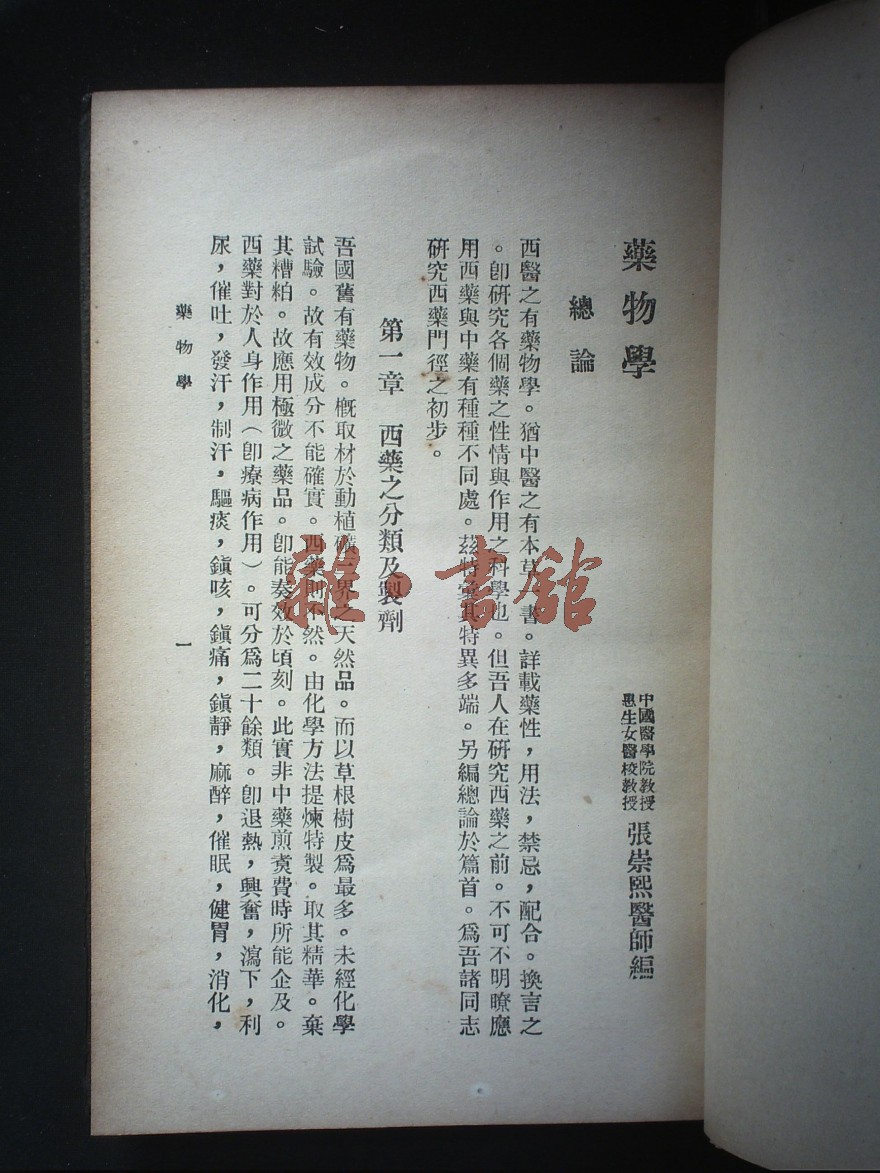 藥物學
中國醫學院教授
惠生女醫校教授
張崇熙醫師編
總論
西醫之有藥物學。猶中醫之有本草一書。詳載藥性,用法,禁忌,配合。換言之
。卽研究各個藥之性情與作用之科學也。但吾人在研究西藥之前。不可不明瞭應
用西藥與中藥有種種不同處。茲特彙其特異多端。另編總論於篇首。爲吾諸同志
研究西藥門徑之初步。
第一章 西藥之分類及製劑
吾國舊有藥物。槪取材於動植礦三界之天然品。而以草根樹皮爲最多。未經化學
試驗。故有效成分不能確實。西藥則不然。由化學方法提煉特製。取其精華。棄
其糟粕。故應用極微之藥品。卽能奏效於頃刻。此實非中藥煎煑費時所能企及。
西藥對於人身作用(卽療病作用)。可分爲二十餘類。卽退熱,興奮,瀉下,利
尿,催吐,發汗,制汗,驅痰,鎭咳,鎭痛,鎭靜,麻醉,催眠,健胃,消化,
藥物學
一
雜·書館